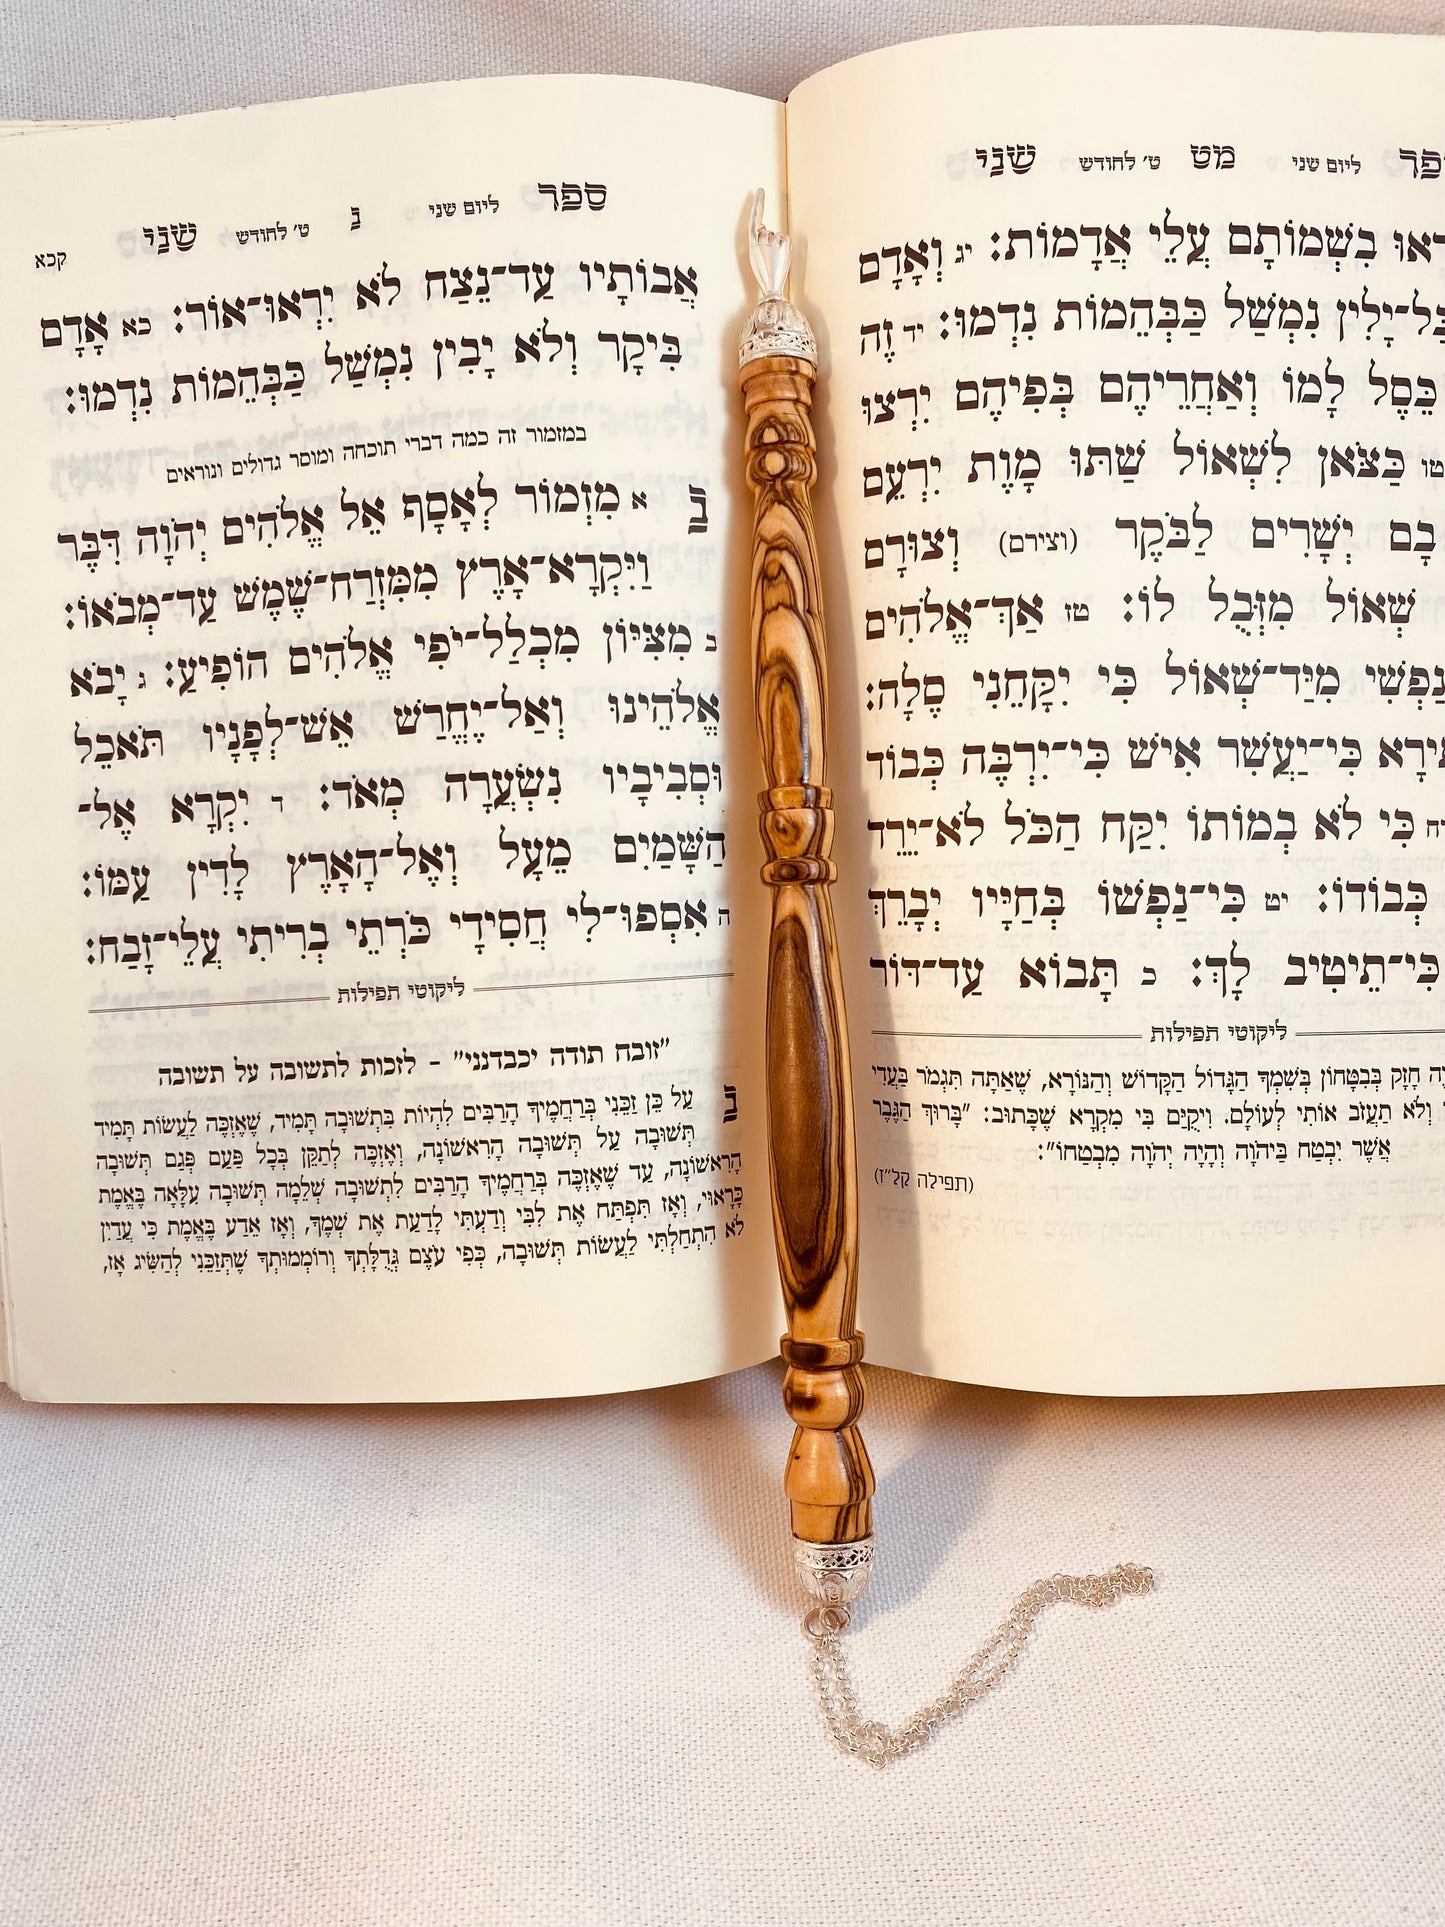 שני ט׳ לחודש מט ליום שני
בִשְׁמוֹתָם עֲלֵי אֲדָמוֹת: יג וְאָדָם
יָלִין נִמְשַׁל כַּבְּהֵמוֹת נִדְמוּ: יד זֶה
כֵּסֶל לָמוֹ וְאַחֲרֵיהֶם בְּפִיהֶם יִרְצוּ
טו כַּצֹּאן לִשְׁאוֹל שַׁתּוּ מָוֶת יִרְעֵם
בָם יְשָׁרִים לַבֹּקֶר (וצירם) וְצוּרָם
שְׁאוֹל מִזְּבֻל לוֹ: טז אַךְ־אֱלֹהִים
נַפְשִׁי מִיַּד־שְׁאוֹל כִּי יִקָּחֵנִי סֶלָה:
כִּי־יַעֲשִׁר אִישׁ כִּי־יִרְבֶּה כְּבוֹד
כִּי לֹא בְמוֹתוֹ יִקַּח הַכֹּל לֹא־יֵרֵד
כְּבוֹדוֹ: יט כִּי־נַפְשׁוֹ בְּחַיָּיו יְבָרֵךְ
כִּי־תֵיטִיב לָךְ: כ תָּבוֹא עַד־דּוֹר
ליקוטי תפילות
חָזָק בְּבִטָּחוֹן בְּשִׁמְךָ הַגָּדוֹל הַקָּדוֹשׁ וְהַנּוֹרָא, שֶׁאַתָּה תִּגְמֹר בַּעֲדִי
וְלֹא תַעֲזֹב אוֹתִי לְעוֹלָם. וִיקֻיַּם בִּי מִקְרָא שֶׁכָּתוּב: "בָּרוּךְ הַגֶּבֶר
אֲשֶׁר יִבְטַח בַּיהֹוָה וְהָיָה יְהֹוָה מִבְטַחוֹ":
(תפילה קל"ז)
ספר ליום שני נ ט׳ לחודש שני קכא
אֲבוֹתָיו עַד־נֵצַח לֹא יִרְאוּ־אוֹר: כא אָדָם
בִּיקָר וְלֹא יָבִין נִמְשַׁל כַּבְּהֵמוֹת נִדְמוּ:
במזמור זה כמה דברי תוכחה ומוסר גדולים ונוראים
נ א מִזְמוֹר לְאָסָף אֵל אֱלֹהִים יְהֹוָה דִּבֶּר
וַיִּקְרָא־אָרֶץ מִמִּזְרַח־שֶׁמֶשׁ עַד־מְבֹאוֹ:
ב מִצִּיּוֹן מִכְלַל־יֹפִי אֱלֹהִים הוֹפִיעַ: ג יָבֹא
אֱלֹהֵינוּ וְאַל־יֶחֱרַשׁ אֵשׁ־לְפָנָיו תֹּאכֵל
וּסְבִיבָיו נִשְׂעֲרָה מְאֹד: ד יִקְרָא אֶל־
הַשָּׁמַיִם מֵעָל וְאֶל־הָאָרֶץ לָדִין עַמּוֹ:
ה אִסְפוּ־לִי חֲסִידָי כֹּרְתֵי בְרִיתִי עֲלֵי־זָבַח:
ליקוטי תפילות
"זובח תודה יכבדנני" - לזכות לתשובה על תשובה
עַל כֵּן זַכֵּנִי בְּרַחֲמֶיךָ הָרַבִּים לִהְיוֹת בִּתְשׁוּבָה תָּמִיד, שֶׁאֶזְכֶּה לַעֲשׂוֹת תָּמִיד
תְּשׁוּבָה עַל תְּשׁוּבָה הָרִאשׁוֹנָה, וְאֶזְכֶּה לְתַקֵּן בְּכָל פַּעַם פְּגַם תְּשׁוּבָה
הָרִאשׁוֹנָה, עַד שֶׁאֶזְכֶּה בְּרַחֲמֶיךָ הָרַבִּים לִתְשׁוּבָה שְׁלֵמָה תְּשׁוּבָה עִלָּאָה בֶּאֱמֶת
כָּרָאוּי, וְאָז תִּפְתַּח אֶת לִבִּי וְדַעְתִּי לָדַעַת אֶת שְׁמֶךָ, וְאָז אֵדַע בֶּאֱמֶת כִּי עֲדַיִן
לֹא הִתְחַלְתִּי לַעֲשׂוֹת תְּשׁוּבָה, כְּפִי עֹצֶם גְּדֻלָּתְךָ וְרוֹמְמוּתְךָ שֶׁתְּזַכֵּנִי לְהַשִּׂיג אָז,